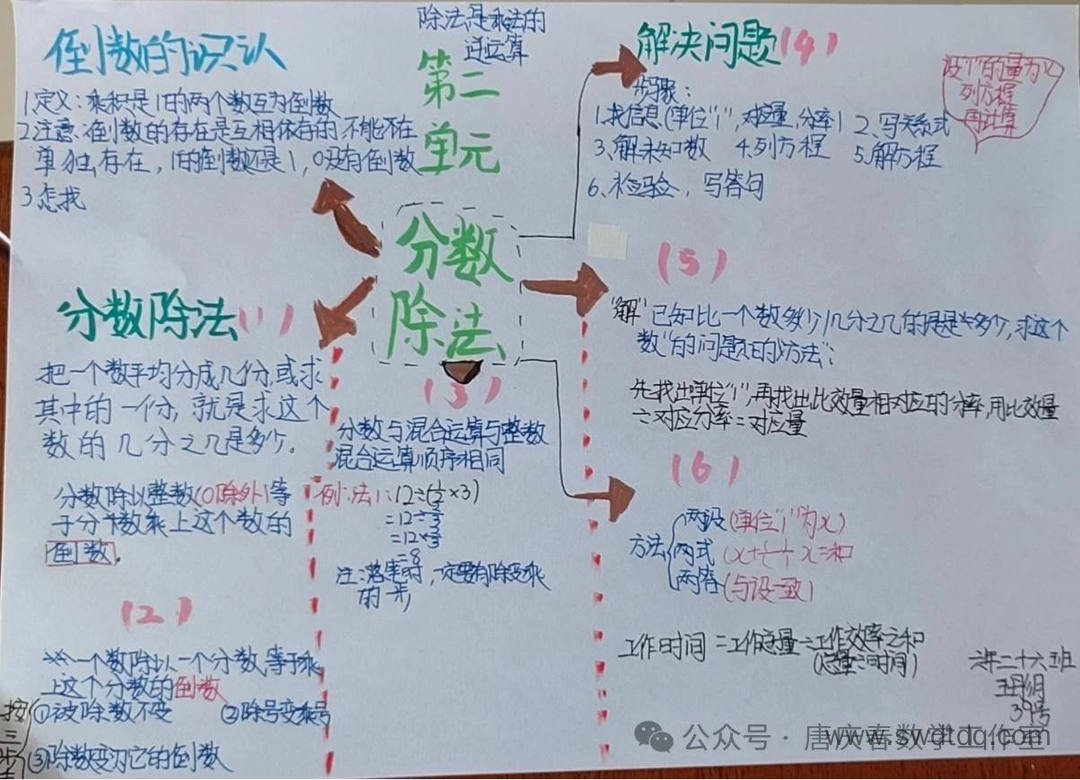 除法是乘法的
逆运算
第二
单元
分数
除法
倒数的认识
1定义：乘积是1的两个数互为倒数
2注意：倒数的存在是互相依存的不能不在
单独存在，1的倒数还是1，0没有倒数
3怎找
分数除法(1)
把一个数平均分成几份,或求
其中的一份，就是求这个
数的几分之几是多少。
分数除以整数(0除外)等
于分数乘上这个数的
倒数。
(2)
一个数除以一个分数,等于乘
上这个分数的倒数
按三步
①被除数不变 ②除号变乘号
③除数变为它的倒数
(3)
分数与混合运算与整数
混合运算顺序相同
例:法1:12÷(1/2×3)
=12÷3/2
=12×2/3
=8
的一步
解决问题(4)
步骤：
1.找信息(单位"1",对应量,分率) 2.写关系式
3.解未知数 4.列方程 5.解方程
6.检验，写答句
设"1"的量为x
列方程
用计算
(5)
"解"已知比一个数多少几分之几的是多少,求这个
数"的问题的方法":
先找出单位"1",再找出比效量相对应的分率,用比效量
÷对应分率=对应量
(6)
方法
两设(单位"1"为x)
两式
两答(与设一致)
工作时间=工作总量÷工作效率之和
二十六班
39号
公众号·唐庆春数学工作室
www.swdtdq.com